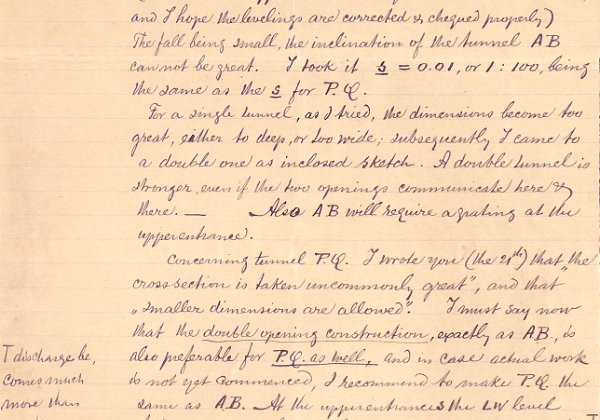 and I hope the levelings are corrected & chequed properly)
The fall being small, the inclination of the tunnel AB
can not be great. I took it s = 0.01, or 1 : 100, being
the same as the s for P.Q.
For a single tunnel, as I tried, the dimensions become too
great, either to deep, or too wide; subsequently I came to
a double one as inclosed sketch. A double tunnel is
stronger, even if the two openings communicate here &
there. — Also AB will require a grating at the
upperentrance.
Concerning tunnel P.Q. I wrote you (the 21th) that „the
cross-section is taken uncommonly great", and that
„smaller dimensions are allowed". I must say now
that the double opening construction, exactly as AB, is
also preferable for P.Q. as well, and in case actual work
is not yet commenced, I recommend to make P.Q. the
same as AB. At the upperentrances the LW level
discharge be,
comes much
more than